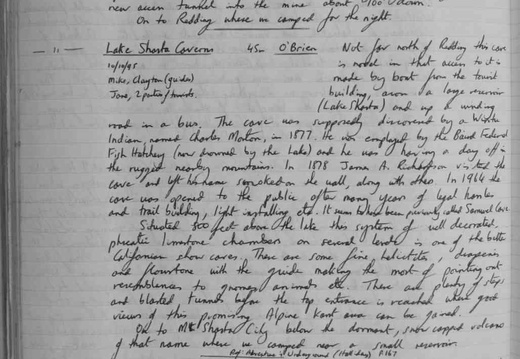 new access tunnel into the mine about 400' down.
On to Redding where we camped for the night.
— 11 — Lake Shasta Caverns 45m O'Brien Not far north of Redding this cave
10/10/95 is novel in that access to it is
Mike, Clayton (guide) made by boat from the tourist
Jane, 2 parties/tourists. building, across a large reservoir
(Lake Shasta) and up a winding
road in a bus. The cave was supposedly discovered by a Wintu
Indian, named Charles Morton, in 1877. He was employed by the Baird Federal
Fish Hatchery (now drowned by the Lake) and he was having a day off in
the rugged nearby mountains. In 1878 James A. Richardson visited the
cave and left his name smoked on the wall, along with others. In 1964 the
cave was opened to the public after many years of legal hassles
and trail building, light installing etc. It seems to have been previously called Samwel Cave
Situated 800 feet above the lake this system of well decorated,
phreatic limestone chambers on several levels is one of the better
Californian show caves. There are some fine helictites, draperies
and flowstone with the guide making the most of pointing out
resemblences to gnomes animals etc. There are plenty of steps
and blasted tunnels before the top entrance is reached where good
views of this promising Alpine karst area can be gained.
On to Mt Shasta City below the dormant, snow capped volcano
of that name where we camped near a small reservoir
Ref Adventure is Underground (Halliday) P167